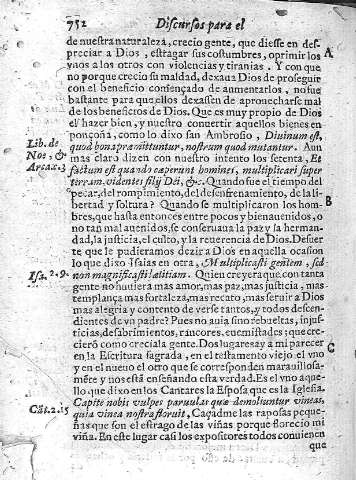 752 Discursos para el
de nuestra naturaleza, crecio gente, que diesse en des-
preciar a Dios, estragar sus costumbres, oprimir los A
vnos a los otros con violencias y tiranias. Y con que
no porque crecio su maldad, dexaua Dios de proseguir
con el beneficio començado de aumentarlos, no fue
bastante para que ellos dexassen de aprouecharse mal
de los beneficios de Dios. Que es muy propio de Dios
el hazer bien, y nuestro conuertir aquellos bienes en
Lib. de ponçoña, como lo dixo san Ambrosio, Diuinum est,
Noe, & quod bona promittuntur, nostrum quod mutantur. Aun
Arca.c.3 mas claro dizen con nuestro intento los setenta, Et
factum est quando cœperunt homines, multiplicari super
terram, videntes filij Dei, &c. Quando fue el tiempo del
pecar, del rompimiento, del desenfrenamiento, de la li-
bertad y soltura? Quando se multiplicaron los hom- B
bres, que hasta entonces entre pocos y bienauenidos, o
no tan mal auenidos, se conseruaua la paz y la herman-
dad, la justicia, el culto, y la reuerencia de Dios. De suer
te que le pudieramos dezir a Dios en aquella ocasion
lo que dixo Isaias en otra, Multiplicasti gentem, sed
Isa. 2.9. non magnificasti lætitiam. Quien creyera que con tanta
gente no huuiera mas amor, mas paz, mas justicia, mas
templança, mas fortaleza, mas recato, mas seruir a Dios
mas alegria y contento de verse tantos, y todos descen-
dientes de vn padre? Pues no auia sino rebueltas, injus-
ticias, desabrimientos, rancores, enemistades: que cre-
cierõ como crecia la gente. Dos lugares ay a mi parecer C
en la Escritura sagrada, en el testamento viejo el vno
y en el nueuo el otro que se corresponden marauillosa-
mẽte y nos està enseñando esta verdad. Es el vno aque-
llo que dixo en los Cantares la Esposa que es la Iglesia.
Cãt. 2.15 Capite nobis vulpes paruulas quæ demoliuntur vineas,
quia vinea nostra floruit, Caçadme las raposas peque-
ñas que son el estrago de las viñas porque florecio mi
viña. En este lugar casi los expositores todos conuienen
que